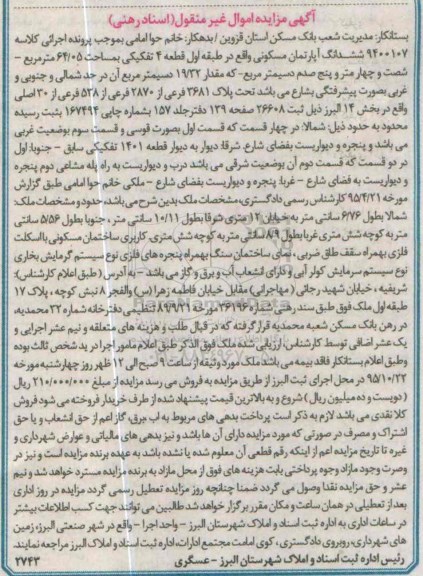 آگهی مزایده اموال غیر منقول(اسناد رهنی)
بستانکار: مدیریت شعب بانک مسکن استان قزوین / بدهکار: خانم حوا امامی بموجب پرونده اجرائی کلاسه
۹۴۰۰۱۰۷ ششدانگ آپارتمان مسکونی واقع در طبقه اول قطعه ۴ تفکیکی بمساحت ۶۴/۰۵ مترمربع -
شصت و چهار متر و پنج صدم دسیمتر مربع- که مقدار ۱۹/۳۲ دسیمتر مربع آن در حد شمالی و جنوبی و
غربی بصورت پیشرفتگی بشارع می باشد تحت پلاک ۳۶۸۱ فرعی از ۲۸۷۰ فرعی از ۵۳۸ فرعی از ۳۰ اصلی
واقع در بخش ۱۴ البرز ذیل ثبت ۲۶۶۰۸ صفحه ۱۳۹ دفتر جلد ۱۵۷ بشماره چاپی ۱۶۷۴۹۴ بثبت رسیده
محدود به حدود ذیل: شمالا: در چهار قسمت که قسمت اول بصورت قوسی و قسمت سوم بوضعیت غربی
می باشد و پنجره و دیواریست بفضای شارع. شرقا: دیوار به دیوار قطعه ۱۴۰۱ تفکیکی سابق - جنوبا: اول
در دو قسمت که قسمت دوم آن بوضعیت شرقی می باشد درب و دیواریست به راه پله مشاعی دوم پنجره
و دیواریست به فضای شارع - غربا: پنجره و دیواریست بفضای شارع - ملکی خانم حوا امامی طبق گزارش
مورخه ۹۵/۴/۲۱ کارشناس رسمی دادگستری، مشخصات ملک بدین شرح می باشد، حدود و مشخصات ملک:
شمالا بطول ۶/۷۶ سانتی متر به خیابان ۱۲ متری شرقا بطول ۱۰/۱۱ سانتی متر، جنوبا بطول ۵/۵۶ سانتی
متر به کوچه شش متری غربا بطول ۸/۹ سانتی متر به کوچه شش متری. کاربری ساختمان مسکونی با اسکلت
فلزی بهمراه سقف طاق ضربی، نمای ساختمان سنگ بهمراه پنجره های فلزی نوع سیستم گرمایش بخاری
نوع سیستم سرمایش کولر آبی و دارای انشعاب آب و برق و گاز می باشد - به آدرس (طبق اعلام کارشناس):
شریفیه، خیابان شهید رجائی (مهاجرانی) مقابل خیابان فاطمه زهرا (س) والفجر ۸ نبش کوچه، پلاک ۱۷
طبقه اول ملک فوق طبق سند رهنی شماره ۳۶۹۹۶ مورخه ۸۹/۹/۲۱ تنظیمی دفترخانه شماره ۳۲ محمدیه،
در رهن بانک مسکن شعبه محمدیه قرار گرفته که در قبال طلب و هزینه های متعلقه و نیم عشر اجرایی و
یک عشر اضافی توسط کارشناس ارزیابی شده ملک فوق الذکر طبق اعلام مامور اجرا در ید شخص ثالث بوده
و طبق اعلام بستانکار فاقد بیمه می باشد ملک مورد وثیقه از ساعت ۹ صبح الی ۱۲ ظهر روز چهارشنبه مورخه
۹۵/۱۰/۲۲ در محل اجرای ثبت البرز از طریق مزایده به فروش می رسد مزایده از مبلغ ۲۱۰/۰۰۰/۰۰۰ ریال
(دویست و ده میلیون ریال) شروع و به بالاترین قیمت پیشنهاد شده از طرف خریدار فروخته می شود فروش
کلا نقدی می باشد لازم به ذکر است پرداخت بدهی های مربوط به آب ،برق، گاز اعم از حق انشعاب و یا حق
اشتراک و مصرف در صورتی که مورد مزایده دارای آن ها باشد و نیز بدهی های مالیاتی و عوارض شهرداری و
غیره تا تاریخ مزایده اعم از اینکه رقم قطعی آن معلوم شده یا نشده باشد به عهده برنده مزایده است و نیز در
وصرت وجود مازاد وجوه پرداختی بابت هزینه های فوق از محل مازاد به برنده مزایده مسترد خواهد شد و نیم
عشر و حق مزایده نقدا وصول می گردد ضمنا چنانچه روز مزایده تعطیل رسمی گردد مزایده در روز اداری
بعد از تعطیلی در همان ساعت و مکان مقرر برگزار خواهد شد طالبین می توانند جهت کسب اطلاعات بیشتر
در ساعات اداری به اداره ثبت اسناد و املاک شهرستان البرز - واحد اجرا - واقع در شهر صنعتی البرز، زمین
های شهرداری، روبروی دادگستری، کوی امامت مجتمع ادارات، اداره ثبت اسناد و املاک البرز مراجعه نمایند.
رئیس اداره ثبت اسناد و املاک شهرستان البرز - عسگری
۲۷۴۳